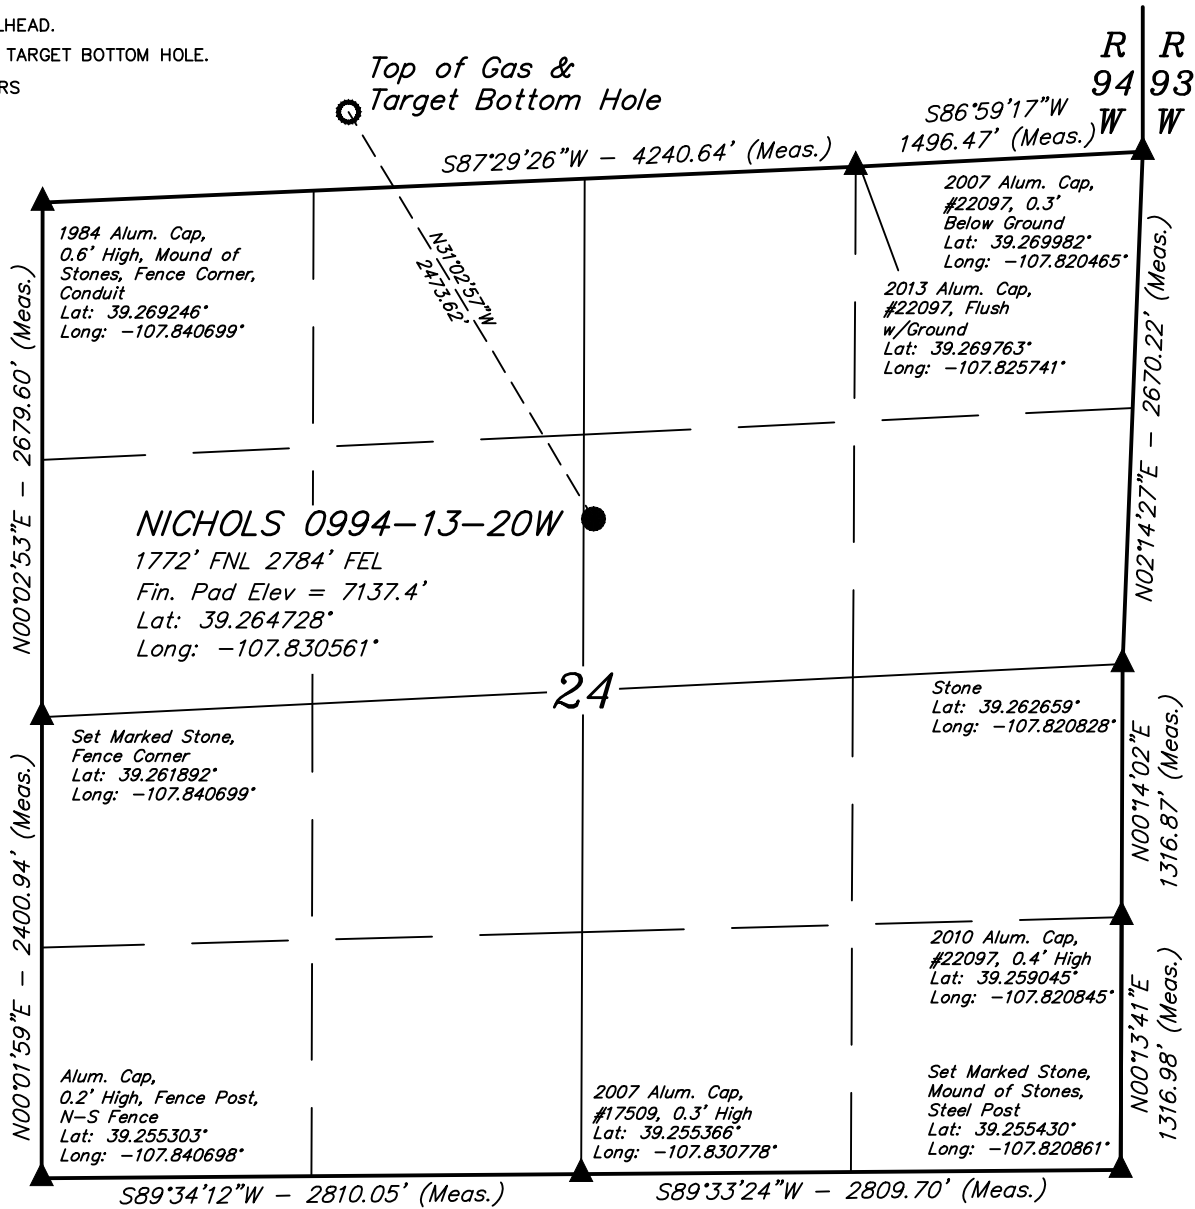 LHEAD.
TARGET BOTTOM HOLE.
RS
Top of Gas &
Target Bottom Hole
R R
94 93
W W
S86°59'17"W
1496.47' (Meas.)
S87°29'26"W – 4240.64' (Meas.)
1984 Alum. Cap,
0.6' High, Mound of
Stones, Fence Corner,
Conduit
Lat: 39.269246°
Long: -107.840699°
N31°02'57"W
2473.62'
2007 Alum. Cap,
#22097, 0.3'
Below Ground
Lat: 39.269982°
Long: -107.820465°
2013 Alum. Cap,
#22097, Flush
w/Ground
Lat: 39.269763°
Long: -107.825741°
N00°02'53"E – 2679.60' (Meas.)
N02°14'27"E – 2670.22' (Meas.)
NICHOLS 0994-13-20W
1772' FNL 2784' FEL
Fin. Pad Elev = 7137.4'
Lat: 39.264728°
Long: -107.830561°
24
Stone
Lat: 39.262659°
Long: -107.820828°
Set Marked Stone,
Fence Corner
Lat: 39.261892°
Long: -107.840699°
N00°01'59"E – 2400.94' (Meas.)
N00°14'02"E
1316.87' (Meas.)
2010 Alum. Cap,
#22097, 0.4' High
Lat: 39.259045°
Long: -107.820845°
N00°13'41"E
1316.98' (Meas.)
Alum. Cap,
0.2' High, Fence Post,
N-S Fence
Lat: 39.255303°
Long: -107.840698°
2007 Alum. Cap,
#17509, 0.3' High
Lat: 39.255366°
Long: -107.830778°
Set Marked Stone,
Mound of Stones,
Steel Post
Lat: 39.255430°
Long: -107.820861°
S89°34'12"W – 2810.05' (Meas.)
S89°33'24"W – 2809.70' (Meas.)